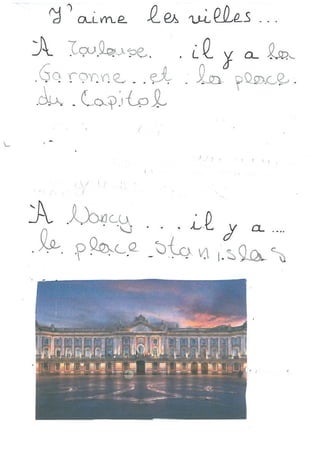 J'aime les villes...
À Toulouse. . il y a la
Garonne. et. la place.
du. Capitol
À Nancy... il y a....
le place stanislas